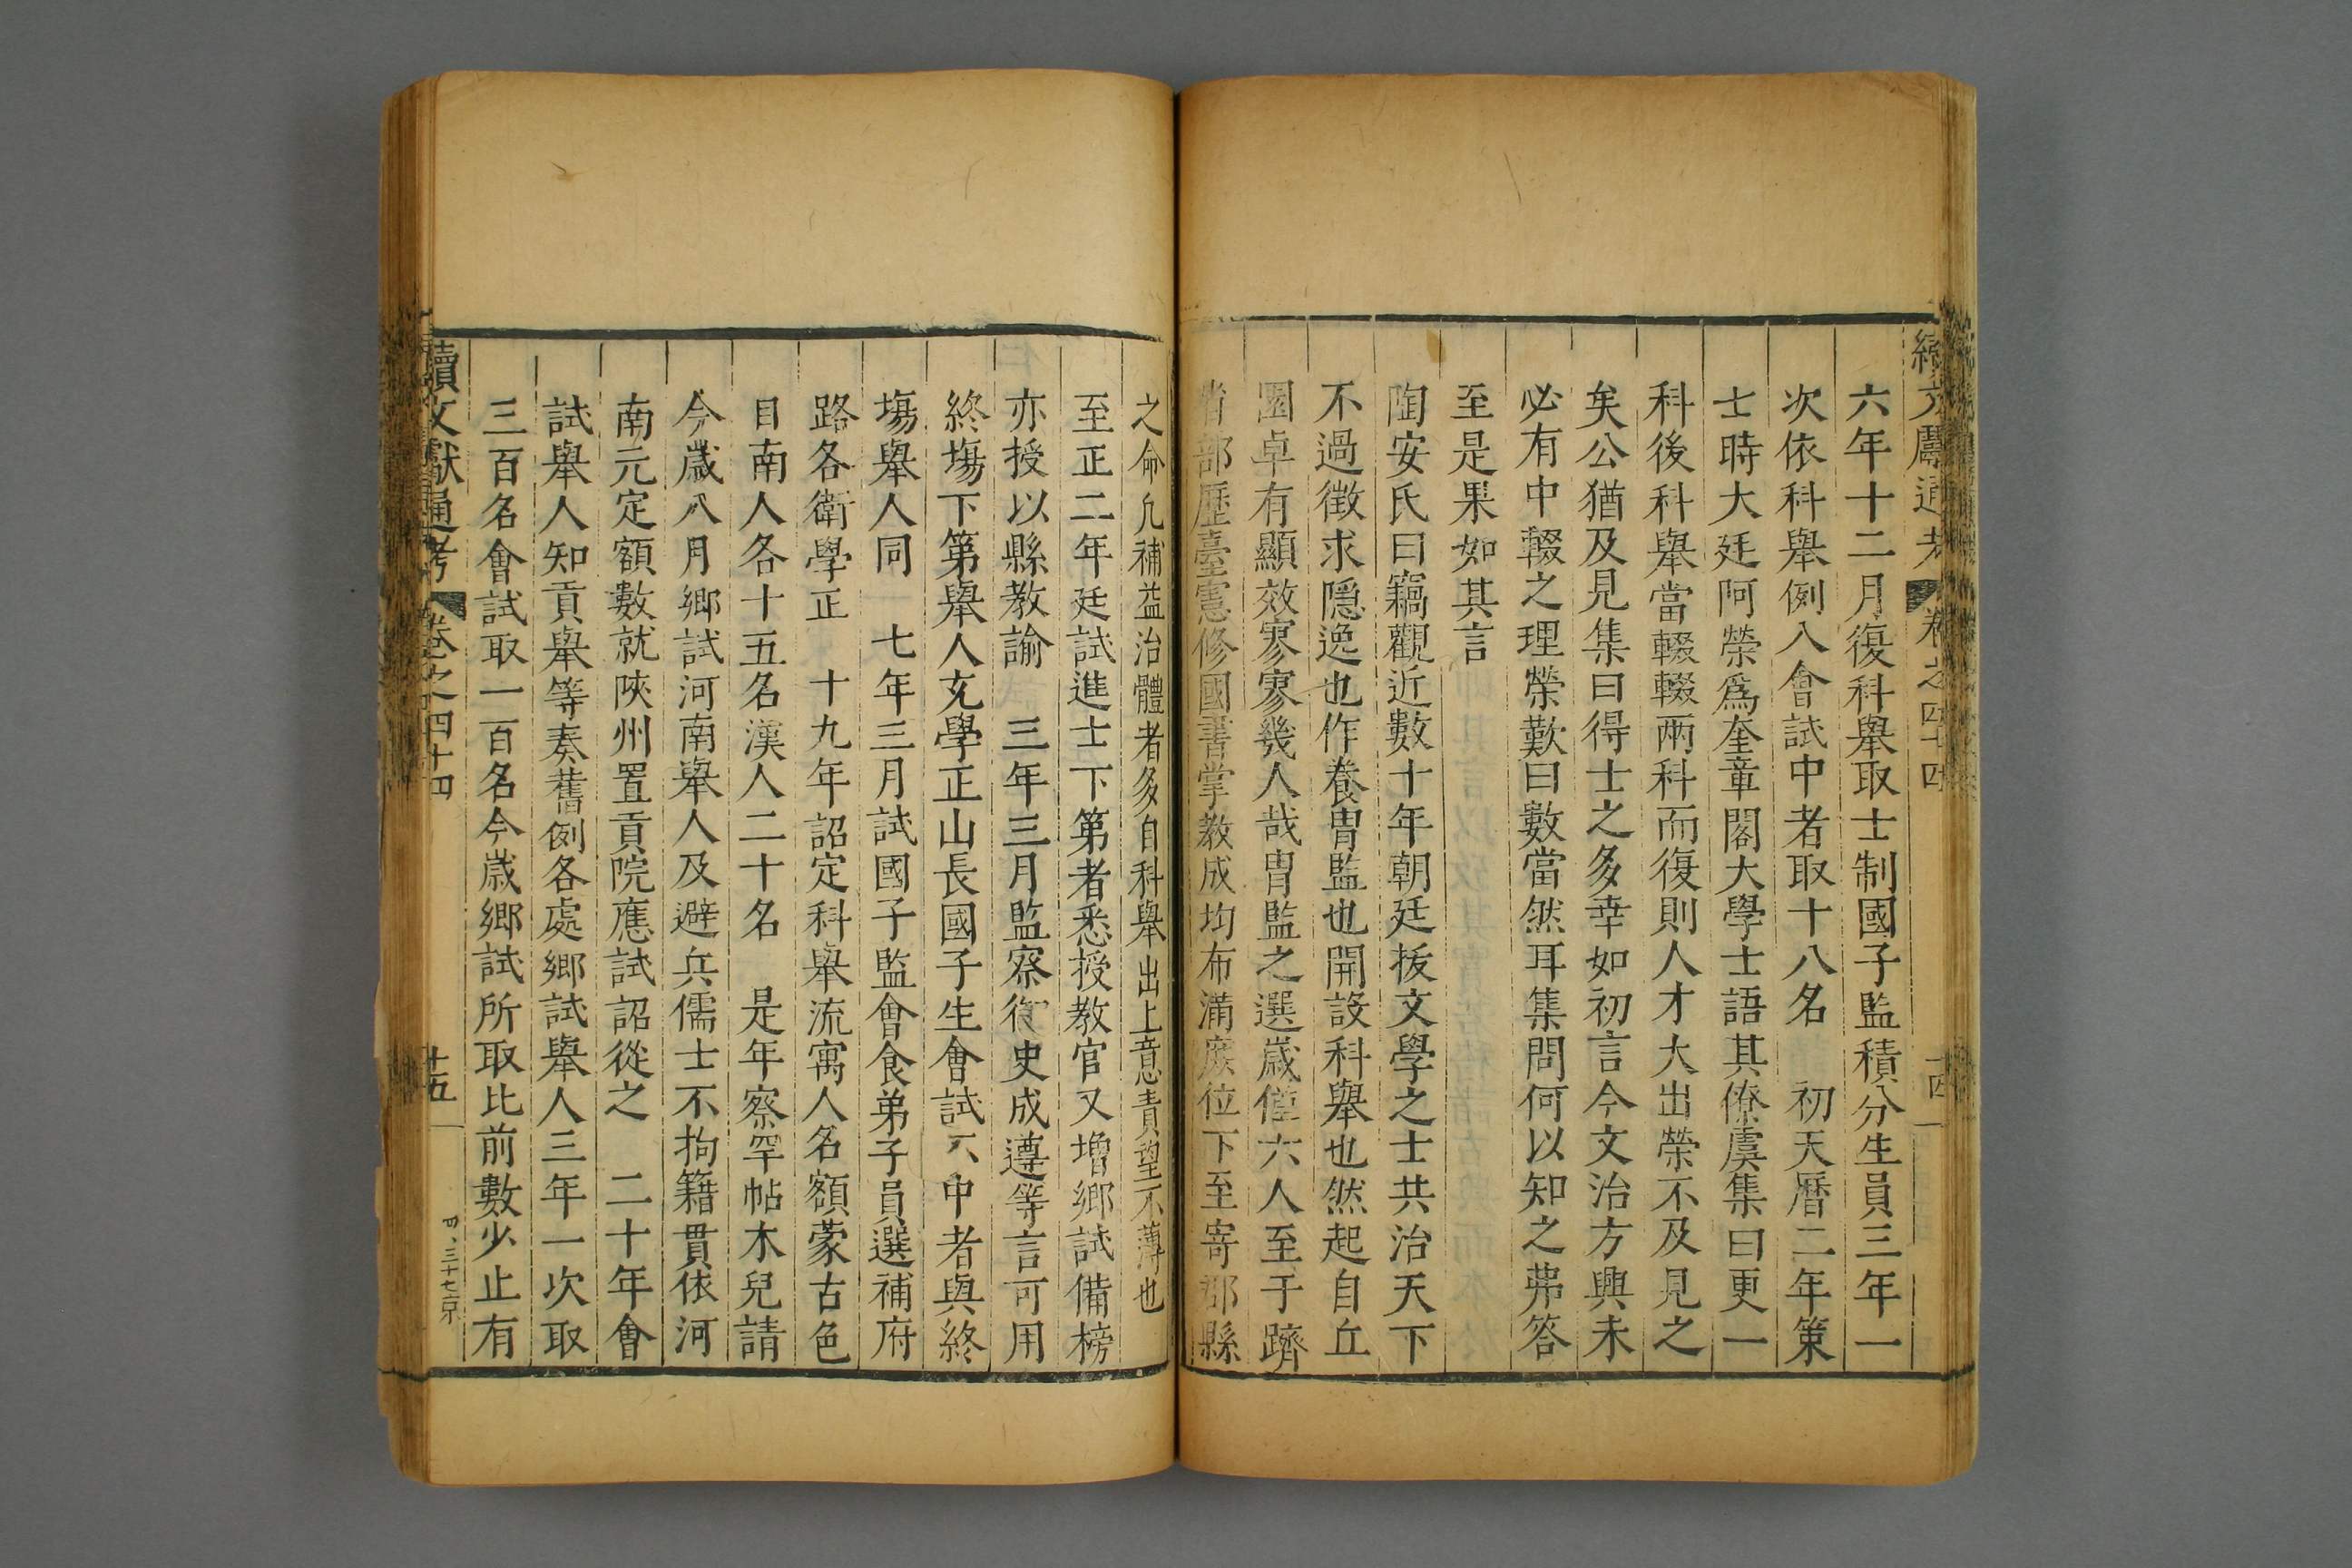 續文獻通考 卷之四十四 十四
六年十二月復科舉取士制國子監積分生員三年一
次依科舉例入會試中者取十八名 初天曆二年策
士時大廷阿榮爲奎章閣大學士語其僚虞集曰更一
科後科舉當輟輟兩科而復則人才大出榮不及見之
矣公猶及見集曰得士之多幸如初言今文治方興未
必有中輟之理榮歎曰數當然耳集問何以知之弗答
至是果如其言
陶安氏曰竊觀近數十年朝廷拔文學之士共治天下
不過徵求隱逸也作養胄監也開設科舉也然起自丘
園卓有顯效寥寥幾人哉胄監之選歲僅六人至于躋
省部歷臺憲修國書掌教成均布滿庶位下至寄郡縣
之命凡補益治體者多自科舉出上意責望不薄也
至正二年廷試進士下第者悉授教官又增鄉試備榜
亦授以縣教諭 三年三月監察御史成遵等言可用
終塲下第舉人充學正山長國子生會試不中者與終
塲舉人同 七年三月試國子監會食弟子員選補府
路各衛學正 十九年詔定科舉流寓人名額蒙古色
目南人各十五名漢人二十名 是年察罕帖木兒請
今歲八月鄉試河南舉人及避兵儒士不拘籍貫依河
南元定額數就陝州置貢院應試詔從之 二十年會
試舉人知貢舉等奏舊例各處鄉試舉人三年一次取
三百名會試取一百名今歲鄉試所取比前數少止有
續文獻通考 卷之四十四 十五
三十七京